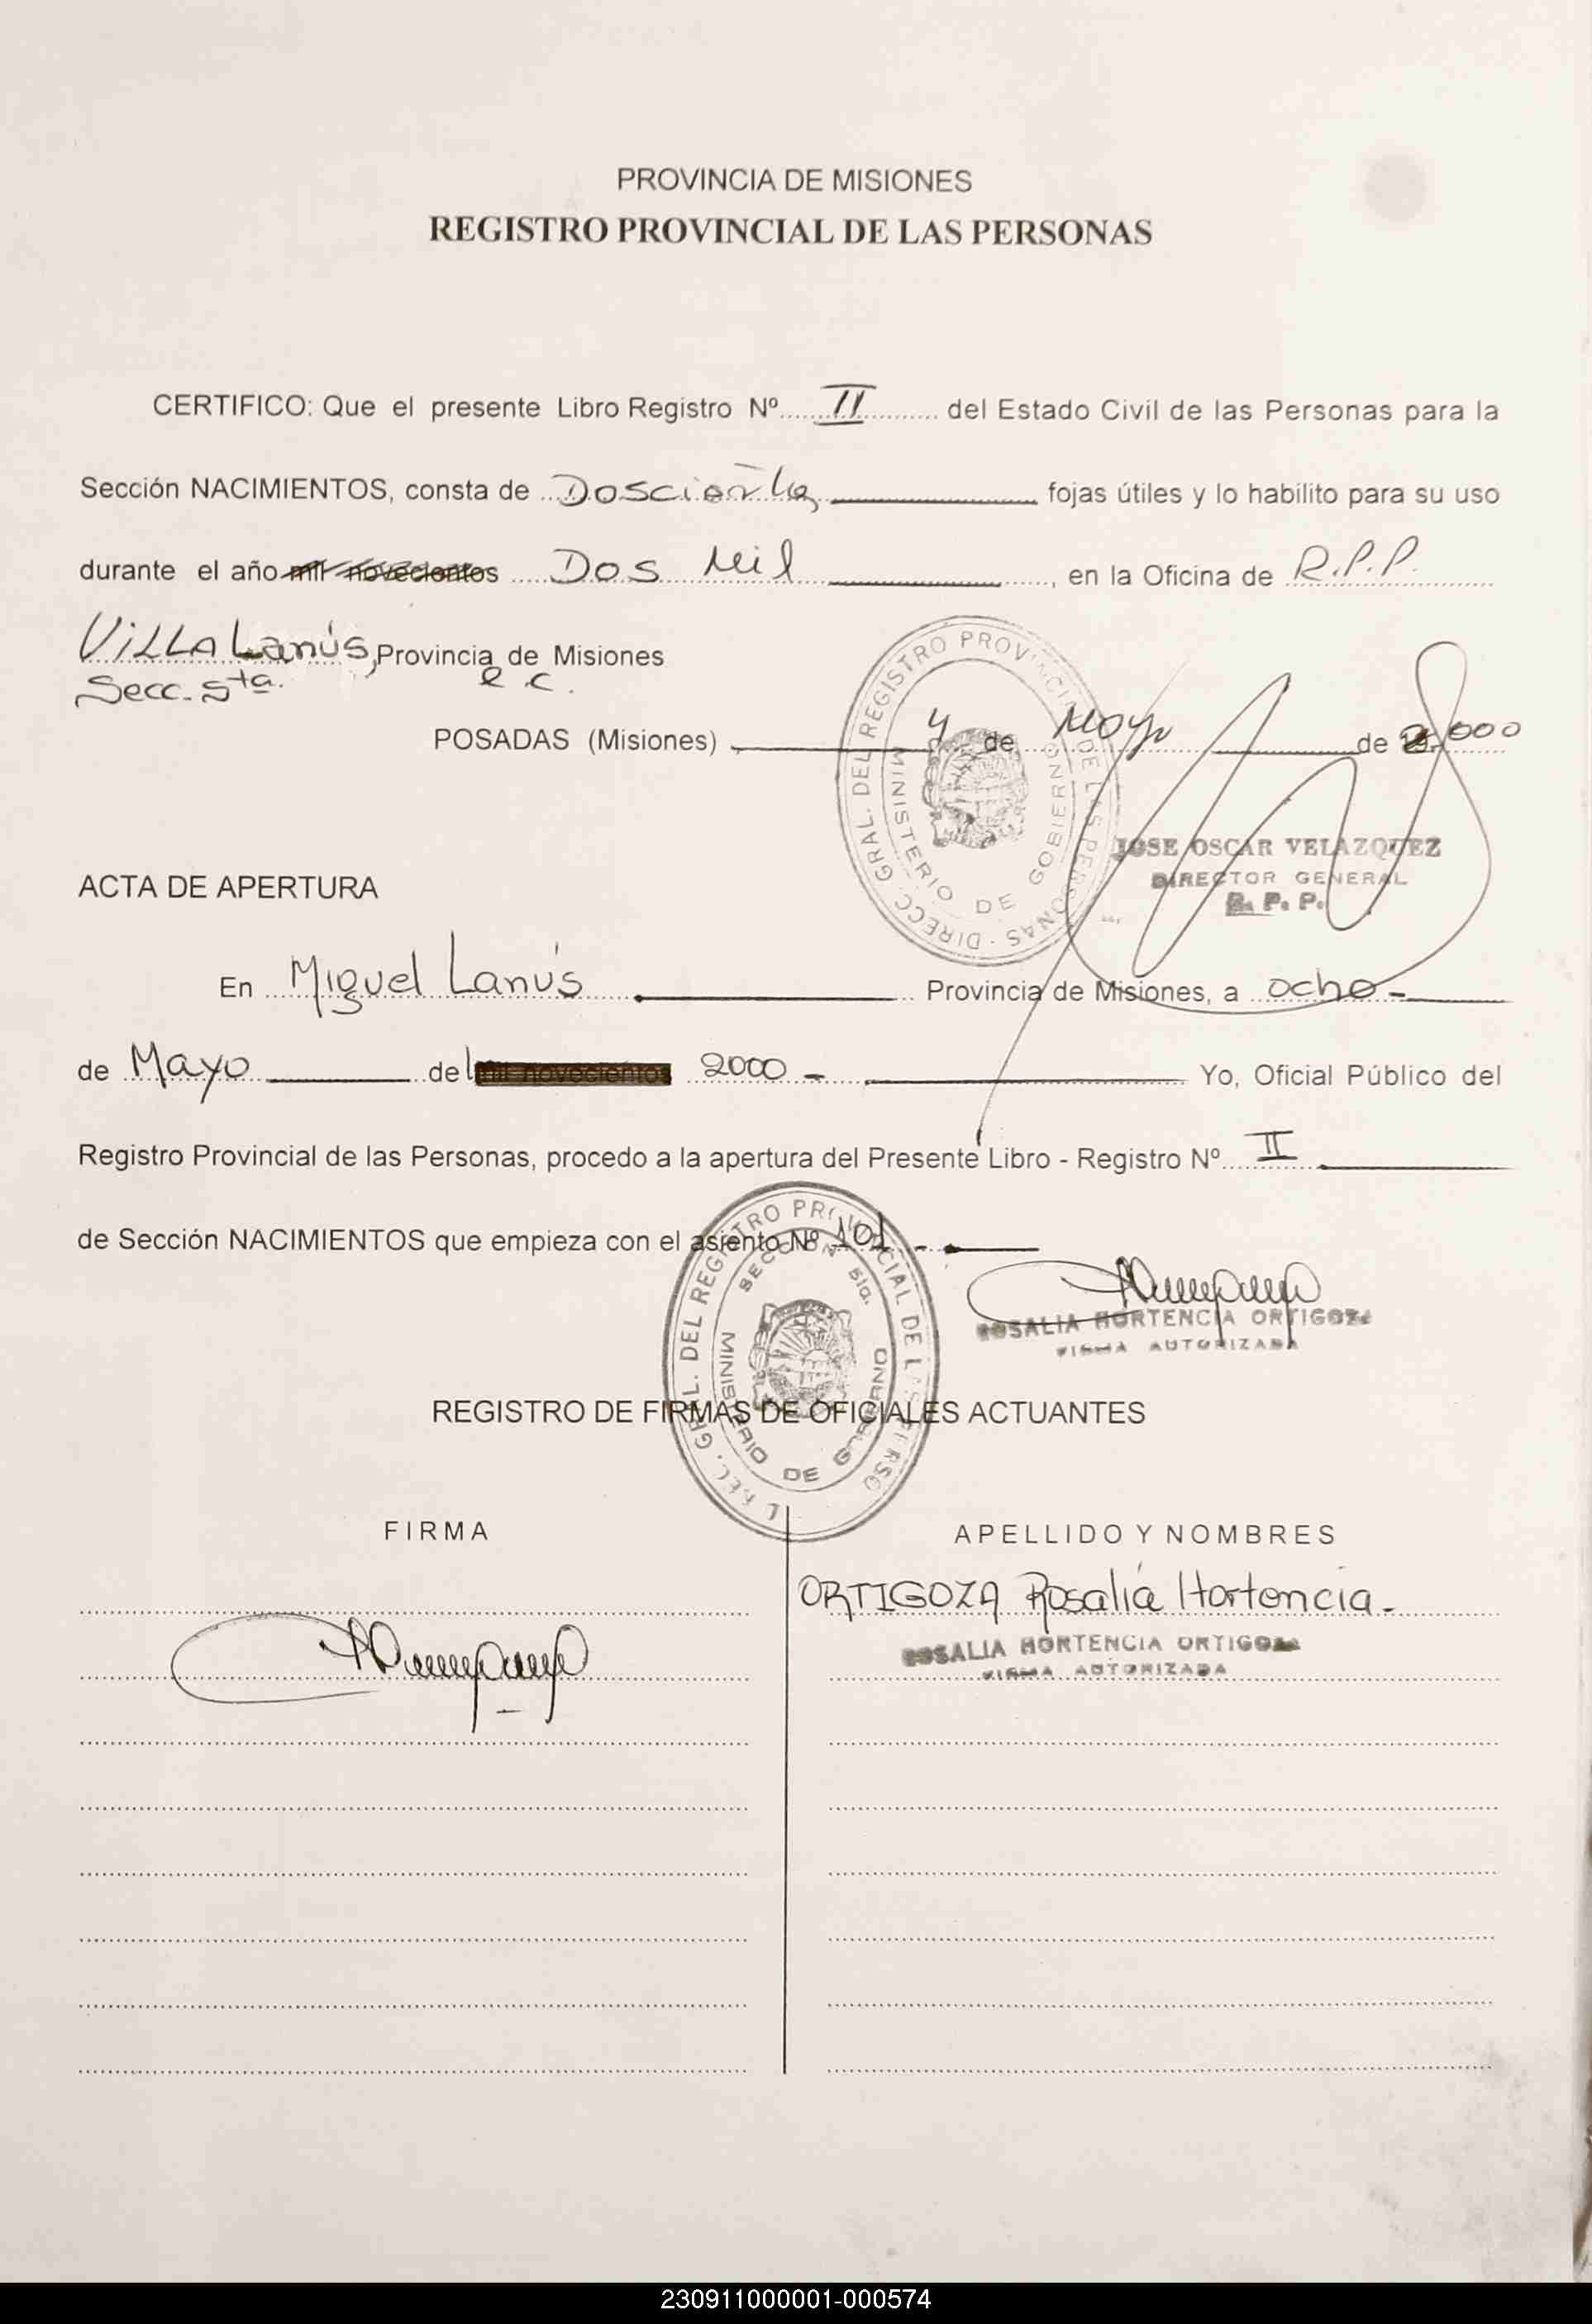 PROVINCIA DE MISIONES
REGISTRO PROVINCIAL DE LAS PERSONAS
CERTIFICO: Que el presente Libro Registro Nº II del Estado Civil de las Personas para la
Sección NACIMIENTOS, consta de Doscientas fojas útiles y lo habilito para su uso
durante el año mil novecientos Dos Mil, en la Oficina de R.P.P.
VILLA Lanús, Provincia de Misiones
Secc. 5ta.
POSADAS (Misiones) 4 de Mayo de 2.000
DIRECC. GRAL. DEL REGISTRO PROVINCIAL DE LAS PERSONAS
MINISTERIO DE GOBIERNO
JOSE OSCAR VELAZQUEZ
DIRECTOR GENERAL
R. P. P.
ACTA DE APERTURA
En Miguel Lanús Provincia de Misiones, a ocho -
de Mayo del mil novecientos 2000 - Yo, Oficial Público del
Registro Provincial de las Personas, procedo a la apertura del Presente Libro - Registro Nº II
de Sección NACIMIENTOS que empieza con el asiento Nº 101 -
GRAL. DEL REGISTRO PROVINCIAL DE
SECCION 5ta.
MINISTERIO DE GOBIERNO
ROSALIA HORTENCIA ORTIGOZA
FIRMA AUTORIZADA
REGISTRO DE FIRMAS DE OFICIALES ACTUANTES
FIRMA
APELLIDO Y NOMBRES
ORTIGOZA Rosalía Hortencia.-
ROSALIA HORTENCIA ORTIGOZA
FIRMA AUTORIZADA
230911000001-000574